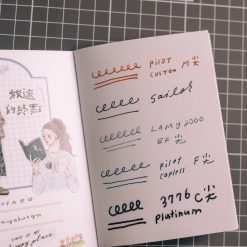 旅途
的終點
THIS IS MY
happy place
PILOT M尖
CUSTOM
Sailor
LAMY 2000
EF尖
pilot F尖
capless
3776 C尖
platinum